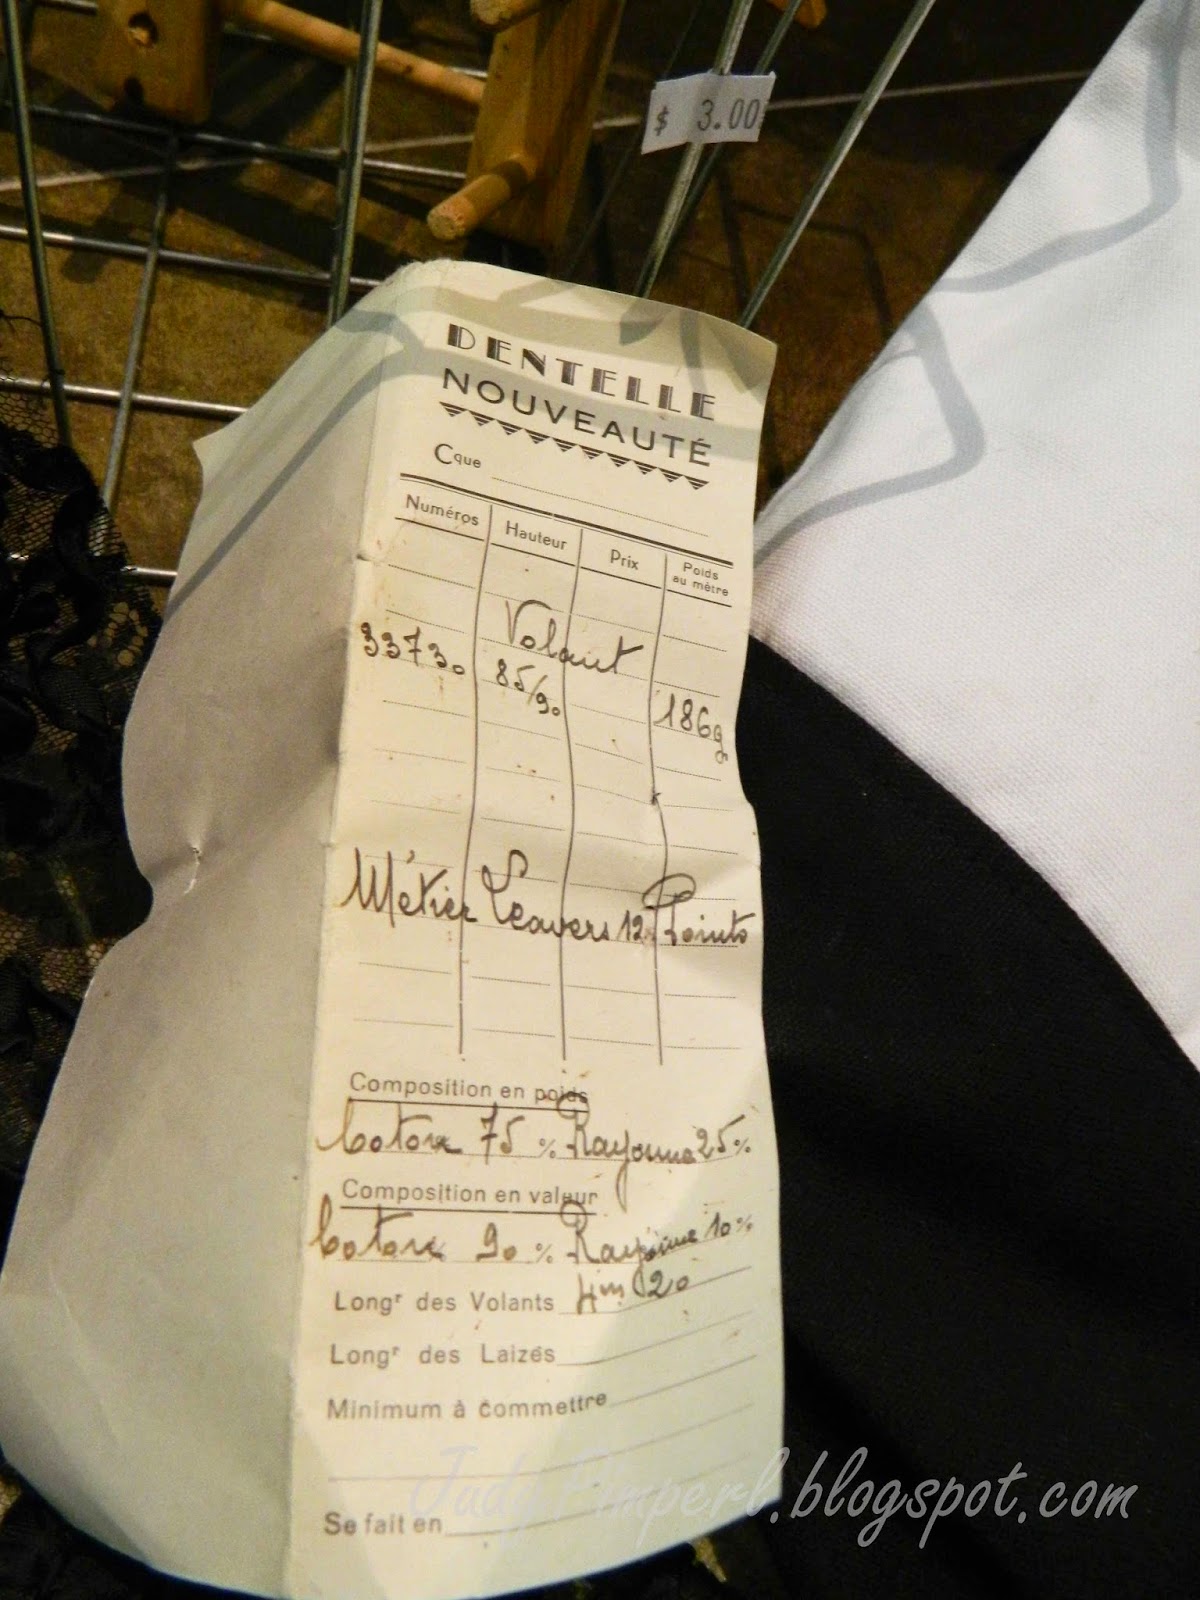 $ 3.00
DENTELLE
NOUVEAUTÉ
Cque
Numéros Hauteur Prix Poids au mètre
Volant
33730 85/90 186g
Métier Leavers 12 Points
Composition en poids
Coton 75 % Rayonne 25 %
Composition en valeur
Coton 90 % Rayonne 10 %
Longr des Volants 4m 20
Longr des Laizés
Minimum à commettre
Se fait en
JudyPimperl.blogspot.com